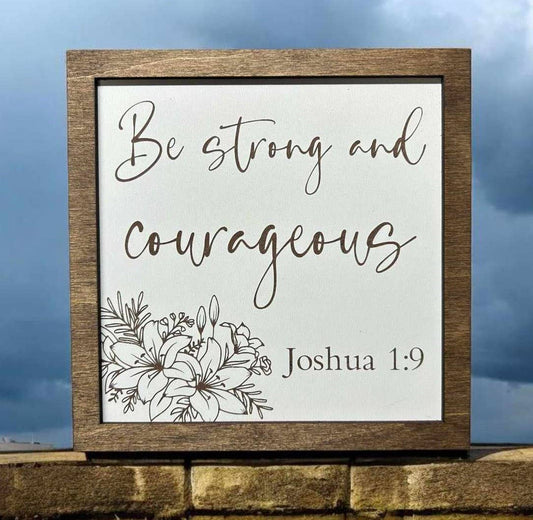 Be strong and
courageous
Joshua 1:9